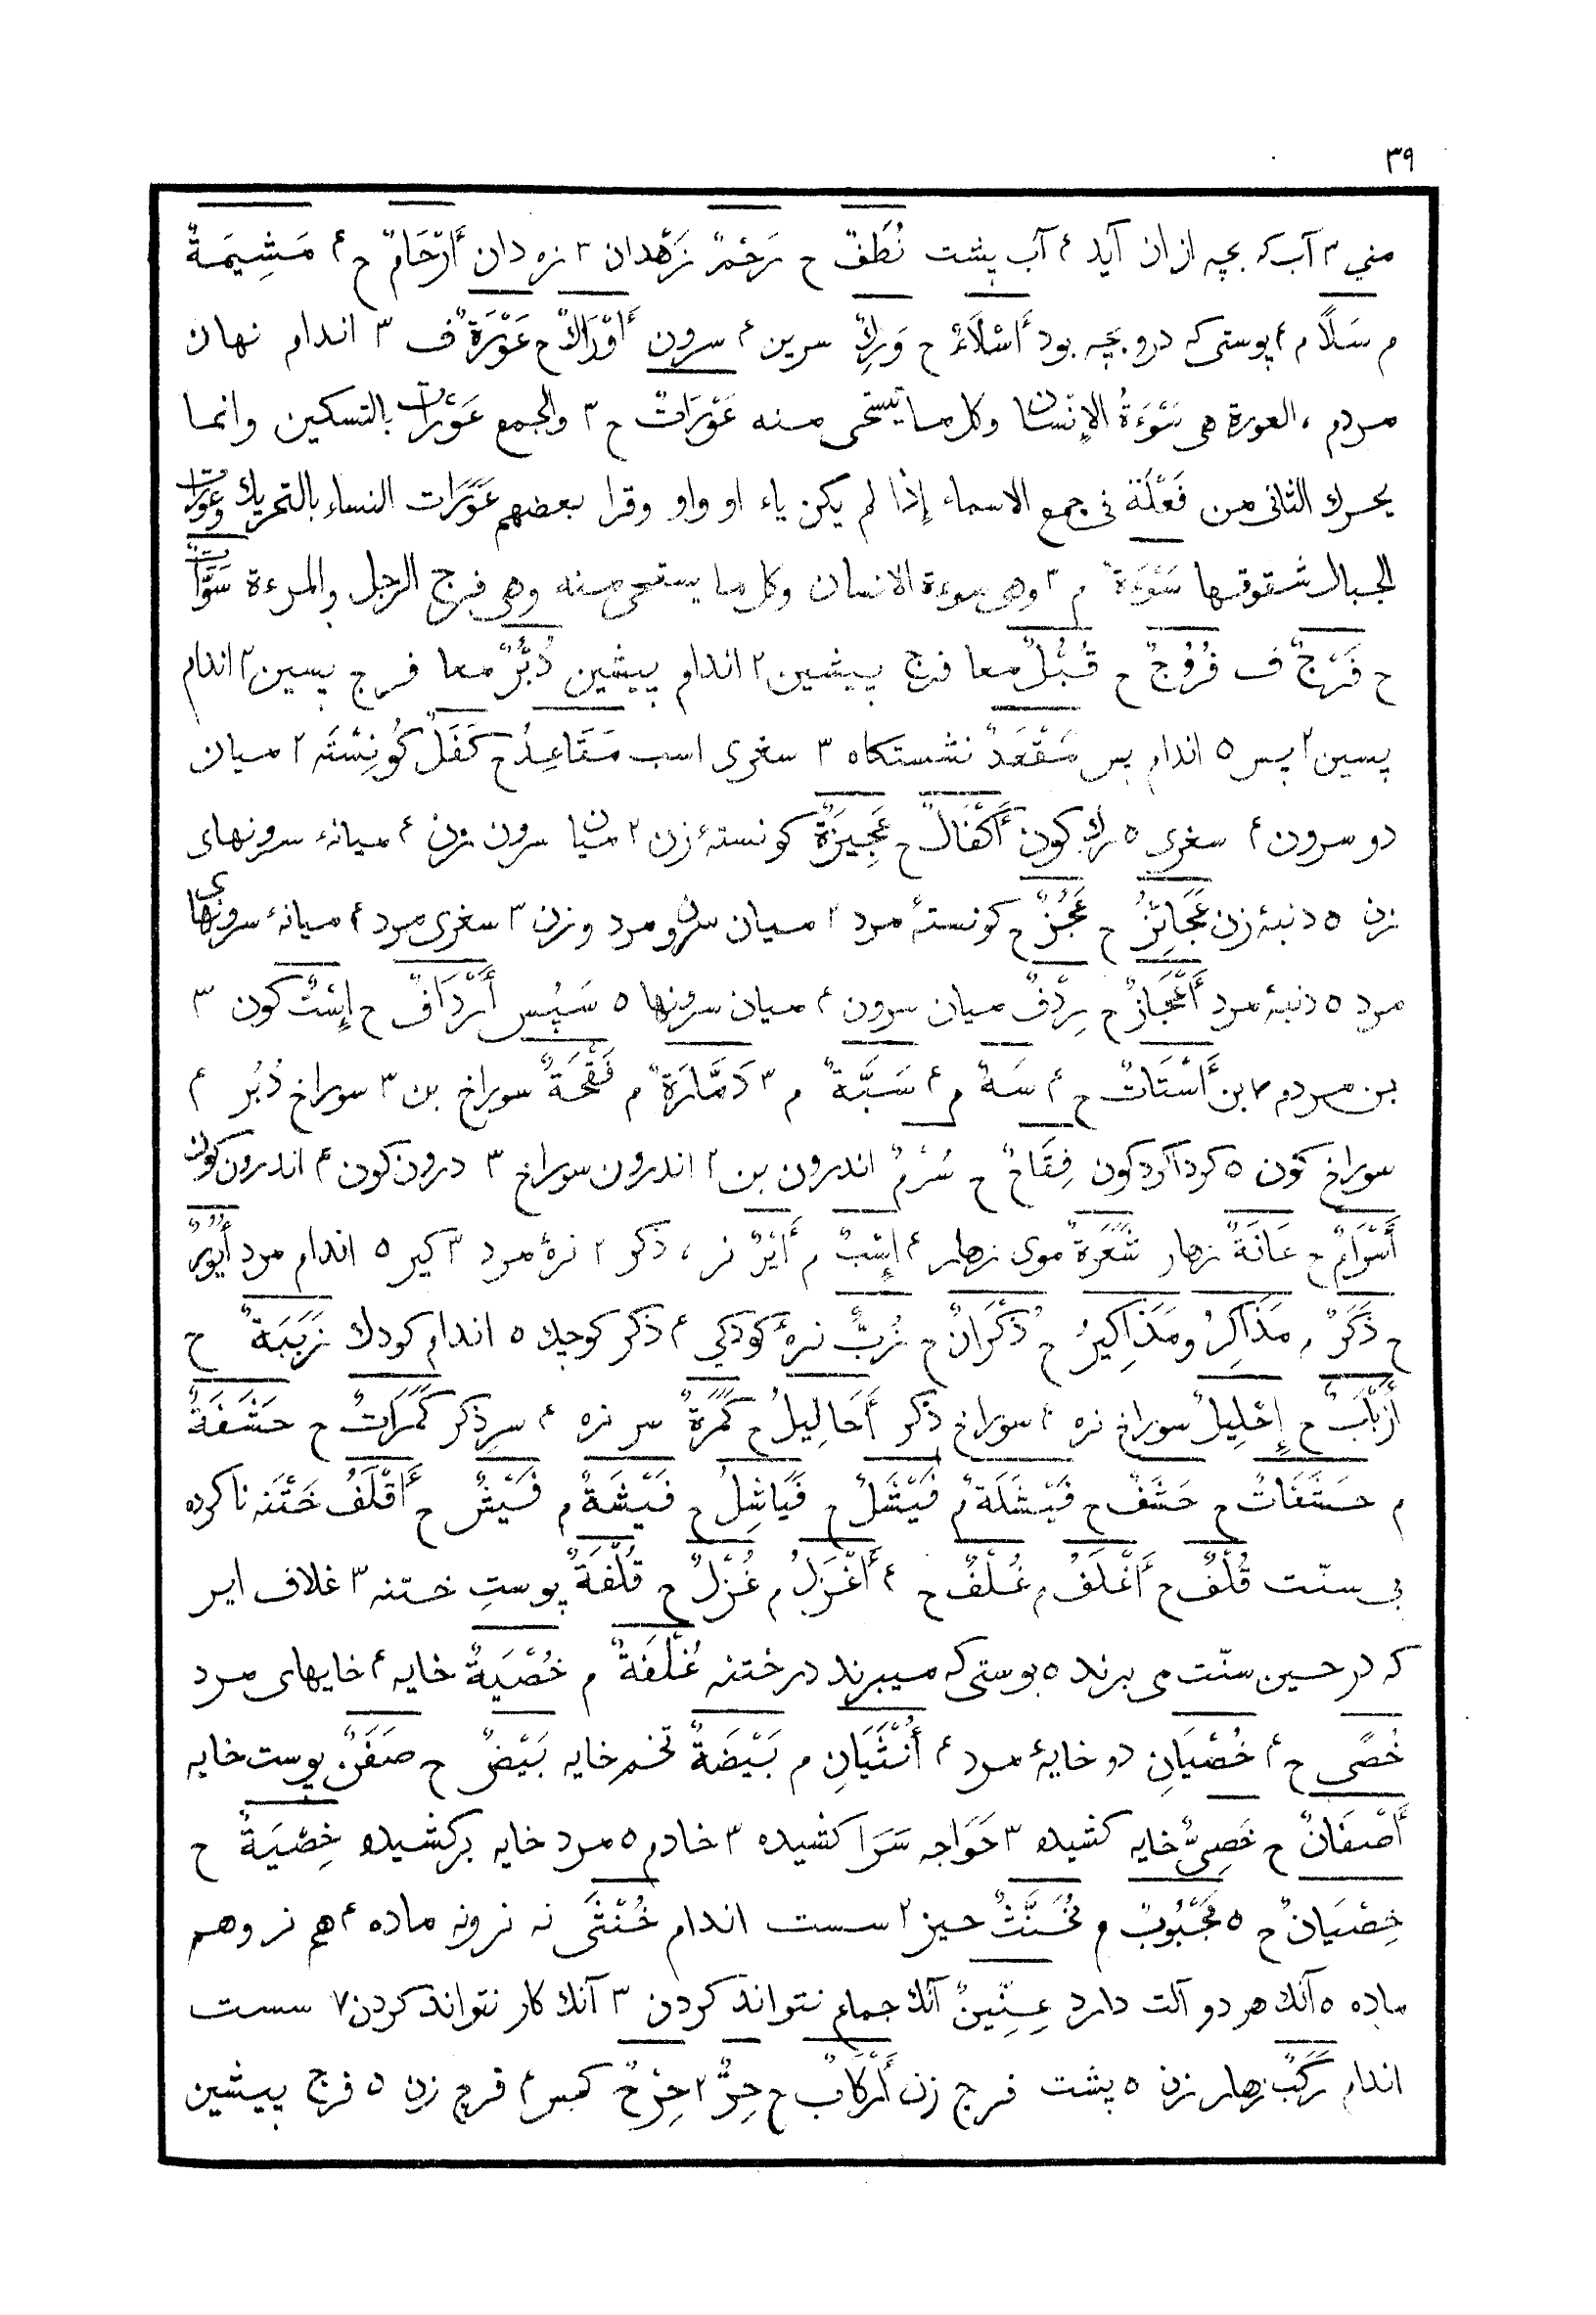 ٣٩
مني ٣ آب که بچه از ان آید ۴ آب پشت نُطَفٌ ح رَحْمٌ زَهْدان ٣ زه دان أَرْحَامٌ ح ۴ مَشِيمَةٌ
م سَلًا م ۴ پوستی که درو بچه بود أَسْلَاءٌ ح وَرِكٌ سرین ۴ سرون أَوْرَاكٌ ح عَوْرَةٌ ف ٣ اندام نهان
مردم ، العورة هی سَوْءَةُ الإنْسان وکل ما یستحی منه عَوْرَاتٌ ح ٣ والجمع عَوْرات بالتسکین وانما
یحرك الثانی من فَعْلَة فی جمع الاسماء إذا لم یکن یاء او واو وقرا بعضهم عَوَرَات النساء بالتحریك وعورات
الجبال شقوقها سَوْءَةٌ م ٣ وهی سوءة الانسان وکل ما یستحی منه وهی فرج الرجل والمرءة سَوْآتٌ
ح فَرْجٌ ف فُرُوجٌ ح قُبُلٌ معا فرج پیشین ٢ اندام پیشین دُبُرٌ معا فرج پسین ٢ اندام
پسین ٢ پس ٥ اندام پس مَقْعَدٌ نشستکاه ٣ سغری اسب مَقَاعِدُ ح کَفَلٌ کُونِسْتَه ٢ میان
دو سرون ۴ سغری ٥ کون أَكْفَالٌ ح عَجِيزَةٌ کونستهٔ زن ٢ میان سرون زن ۴ میانهٔ سرونهای
زن ٥ دنبهٔ زن عَجَائِزُ ح عَجُزٌ ح کونستهٔ مرد ٢ میان سرون مرد و زن ٣ سغری مرد ۴ میانهٔ سرونهای
مرد ٥ دنبهٔ مرد أَعْجَازٌ ح رِدْفٌ میان سرون ۴ میان سرونها ٥ سَپُس أَرْدَافٌ ح إِسْتٌ کون ٣
بن مردم ٧ بن أَسْتَاتٌ ح ۴ سَهٌ م ۴ سَبَّةٌ م ٣ دَمَّارَةٌ م فَقْحَةٌ سوراخ بن ٣ سوراخ دُبُر ۴
سوراخ کون ٥ کرداکرد کون فِقَاحٌ ح سُرْمٌ اندرون بن ٢ اندرون سوراخ ٣ درون کون ۴ اندرون کون
أَسْرَامٌ ح عَانَةٌ زهار شَعْرَةٌ موی زهار ۴ إِسْبٌ م أَيْرٌ نر ، ذکر ٢ نرهٔ مرد ٣ کیر ٥ اندام مرد أُيُورٌ
ح ذَكَرٌ م مَذَاكِرُ و مَذَاكِيرُ ح ذُكْرَانٌ ح زُبٌّ نرهٔ کودکی ۴ ذکر کوچك ٥ اندام کودك زَبَبَةٌ ح
أَزْبَابٌ ح إِحْلِيلٌ سوراخ نره ۴ سوراخ ذکر أَحَالِيلُ ح كَمَرَةٌ سر نره ۴ سرِ ذکر كَمَرَاتٌ ح حَشَفَةٌ
م حَشَفَاتٌ ح حَشَفٌ ح فَيْشَلَةٌ م فَيْشَلٌ ح فَيَاشِلُ ح فَيْشَةٌ م فَيْشٌ ح أَقْلَفُ خَتْنَه ناکرده
بی سنّت قُلْفٌ ح أَغْلَفُ م غُلْفٌ ح ۴ أَغْرَلُ م غُرْلٌ ح قُلْفَةٌ پوستِ ختنه ٣ غلاف ایر
که در حین سنّت می برند ٥ پوستی که میبرند در ختنه غُلْفَةٌ م خُصْيَةٌ خایه ۴ خایهای مرد
خُصًى ح ۴ خُصْيَانِ دو خایهٔ مرد ۴ أُنْثَيَانِ م بَيْضَةٌ تخم خایه بَيْضٌ ح صَفَنٌ پوست خایه
أَصْفَانٌ ح خَصِيٌّ خایه کشیده ٣ خَوَاجه سَرَا کشیده ٣ خادم ٥ مرد خایه برکشیده خِصْيَةٌ ح
خِصْيَانٌ ح ٥ مَجْبُوبٌ م مُخَنَّثٌ حیز ٢ سست اندام خُنْثَى نه نر ونه ماده ۴ هم نر وهم
ماده ٥ آنك هر دو آلت دارد عِنِّينٌ آنك جماع نتواند کردن ٣ آنك کار نتواند کردن ٧ سست
اندام رَكَبٌ زهار زن ٥ پشت فرج زن أَرْكَابٌ ح حِرٌّ ٢ حِرْحٌ کس ۴ فرج زن ٥ فرج پیشین